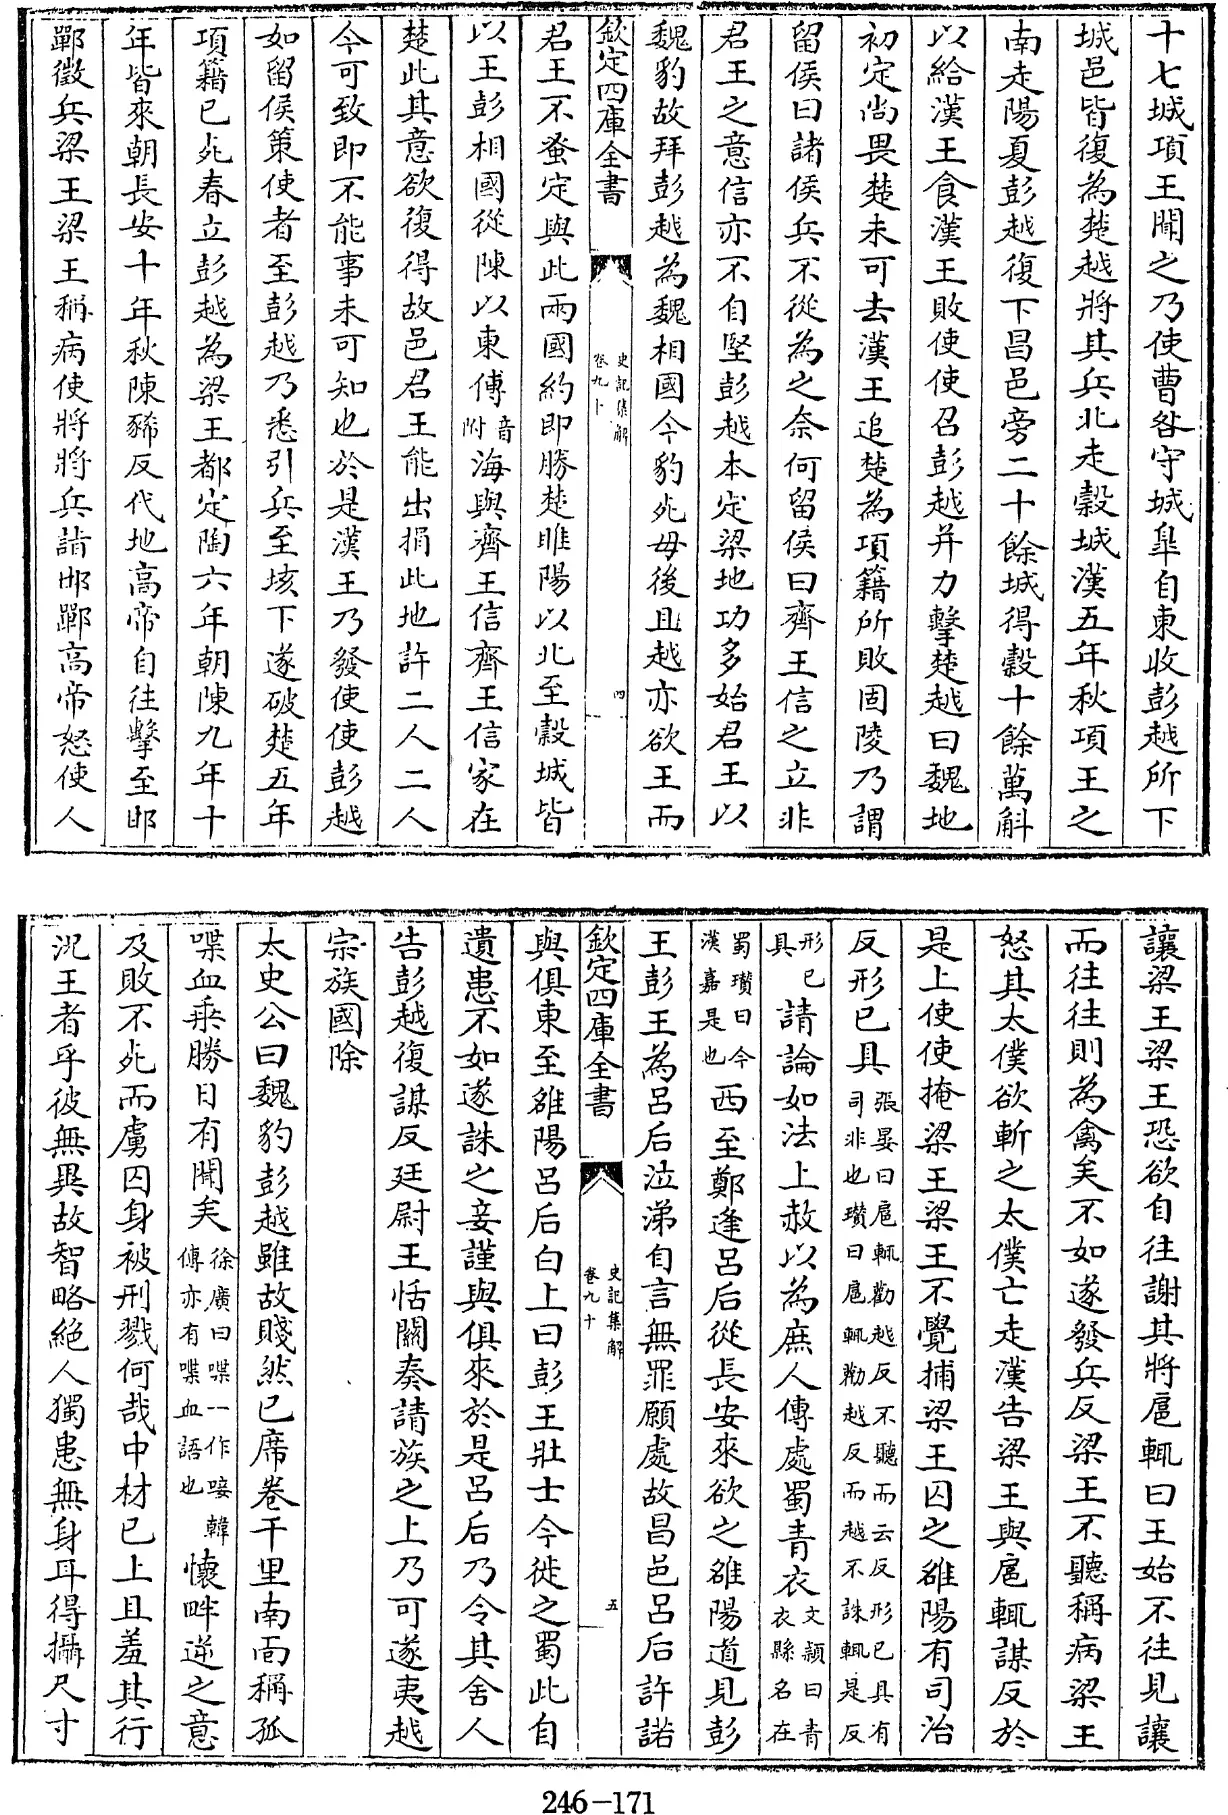 十七城項王聞之乃使曹咎守城臯自東收彭越所下
城邑皆復為楚越將其兵北走穀城漢五年秋項王之
南走陽夏彭越復下昌邑旁二十餘城得穀十餘萬斛
以給漢王食漢王敗使使召彭越并力擊楚越曰魏地
初定尚畏楚未可去漢王追楚為項籍所敗固陵乃謂
留侯曰諸侯兵不從為之奈何留侯曰齊王信之立非
君王之意信亦不自堅彭越本定梁地功多始君王以
魏豹故拜彭越為魏相國今豹死毋後且越亦欲王而
欽定四庫全書 史記集解 卷九十 四
君王不蚤定與此兩國約即勝楚睢陽以北至穀城皆
以王彭相國從陳以東傅音附海與齊王信齊王信家在
楚此其意欲復得故邑君王能出捐此地許二人二人
今可致即不能事未可知也於是漢王乃發使使彭越
如留侯策使者至彭越乃悉引兵至垓下遂破楚五年
項籍已死春立彭越為梁王都定陶六年朝陳九年十
年皆來朝長安十年秋陳豨反代地高帝自往擊至邯
鄲徵兵梁王梁王稱病使將將兵詣邯鄲高帝怒使人
讓梁王梁王恐欲自往謝其將扈輒曰王始不往見讓
而往往則為禽矣不如遂發兵反梁王不聽稱病梁王
怒其太僕欲斬之太僕亡走漢告梁王與扈輒謀反於
是上使使掩梁王梁王不覺捕梁王囚之雒陽有司治
反形已具張晏曰扈輒勸越反不聽而云反形已具有司非也瓚曰扈輒勸越反而越不誅輒是反
形已具請論如法上赦以為庶人傳處蜀青衣文穎曰青衣縣名在
蜀瓚曰今漢嘉是也西至鄭逢呂后從長安來欲之雒陽道見彭
王彭王為呂后泣涕自言無罪願處故昌邑呂后許諾
欽定四庫全書 史記集解 卷九十 五
與俱東至雒陽呂后白上曰彭王壯士今徙之蜀此自
遺患不如遂誅之妾謹與俱來於是呂后乃令其舍人
告彭越復謀反廷尉王恬關奏請族之上乃可遂夷越
宗族國除
太史公曰魏豹彭越雖故賤然已席卷千里南面稱孤
喋血乘勝日有聞矣徐廣曰喋一作唼韓傳亦有喋血語也懷畔逆之意
及敗不死而虜囚身被刑戮何哉中材已上且羞其行
況王者乎彼無異故智略絕人獨患無身耳得攝尺寸
246-171